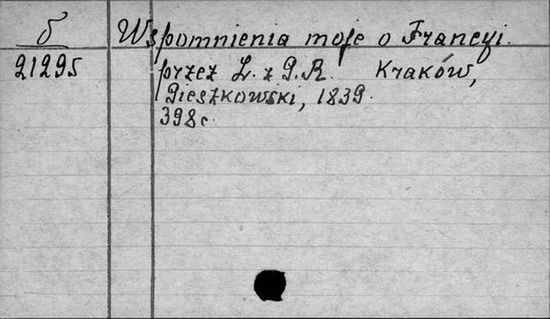 б Wspomnienia moje o Francyi.
21295 przez Ł. z G. R. Kraków,
Gieszkowski, 1839.
398 c.